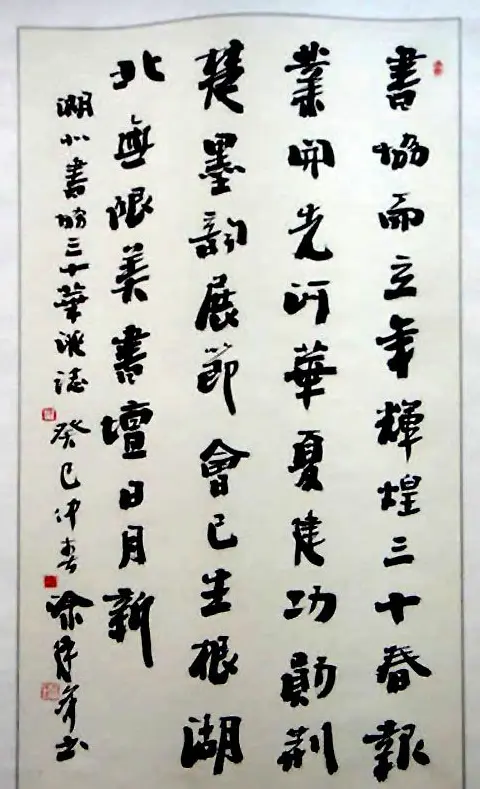 書協而立年輝煌三十春報
業開先河華夏建功勛荆
楚墨韵展節會已生根湖
北無限美書壇日月新
湖北書協三十華誕誌 癸巳仲春 徐